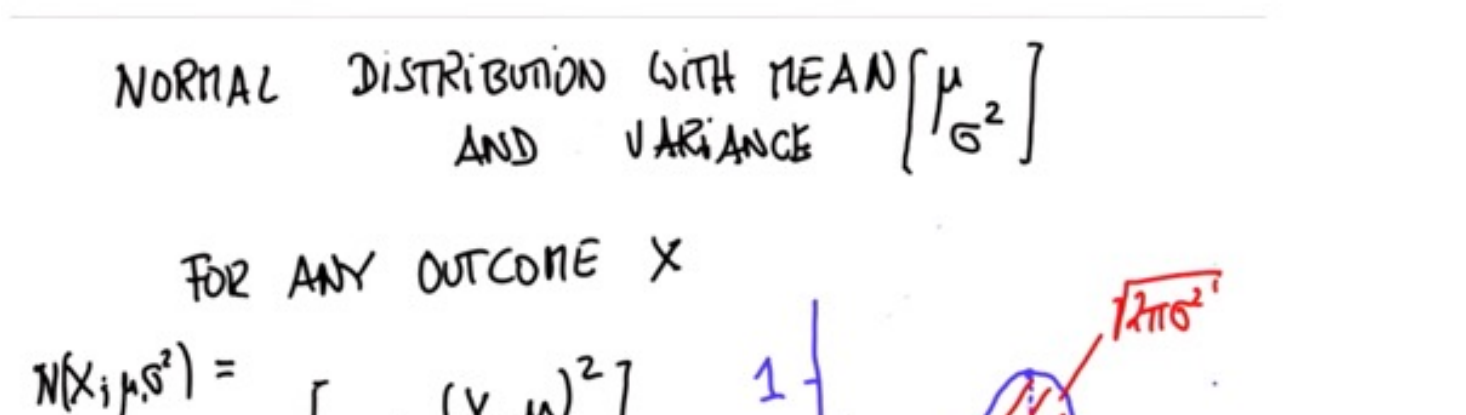 NORMAL DISTRIBUTION WITH MEAN [μ
AND VARIANCE σ²]
FOR ANY OUTCOME X
√2πσ²
N(X; μ, σ²) =
1
[ (X μ)²]